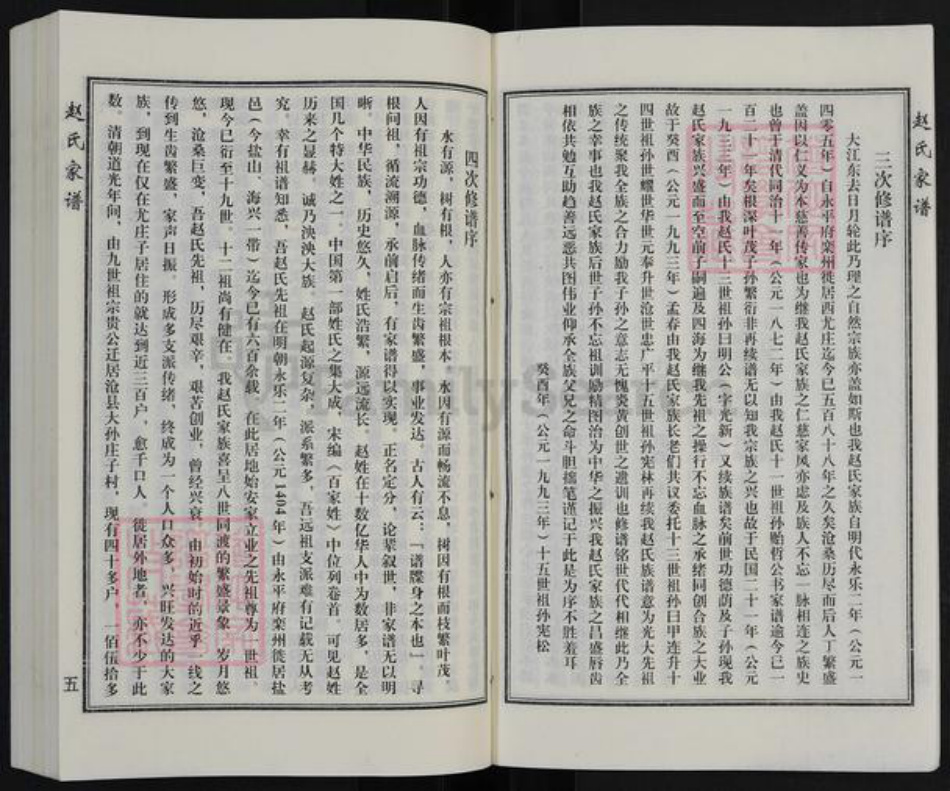 赵氏家谱
三次修谱序
大江东去日月轮此乃理之自然宗族亦盖如斯也我赵氏家族自明代永乐二年（公元一
四零五年）自永平府栾州徙居西尤庄迄今已五百八十八年之久矣沧桑历尽而后人丁繁盛
盖因以仁义为本慈善传家也为继我赵氏家族之仁慈家风亦虑及族人不忘一脉相连之族史
也曾于清代同治十一年（公元一八七二年）由我赵氏十一世祖孙贻哲公书家谱逾今已一
百二十一年矣根深叶茂子孙繁衍非再续谱无以知我宗族之兴也故于民国二十一年（公元
一九三三年）由我赵氏十三世祖孙曰明公（字光新）又续族谱矣前世功德荫及子孙现我
赵氏家族兴盛而至空前子嗣遍及四海为继我先祖之操行不忘血脉之承绪同创合族之大业
故于癸酉（公元一九九三年）孟春由我赵氏家族长老们共议委托十三世祖孙曰甲连升十
四世祖孙世耀世华世元奉升世沧世忠广平十五世祖孙宪林再续我赵氏族谱意为光大先祖
之传统聚我全族之合力励我子孙之意志无愧炎黄创世之遗训也修谱铭世代代相继此乃全
族之幸事也我赵氏家族后世子孙不忘祖训励精图治为中华之振兴我赵氏家族之昌盛唇齿
相依共勉互助趋善远恶共图伟业仰承全族父兄之命斗胆拙笔谨记于此是为序不胜羞耳
癸酉年（公元一九九三年）十五世祖孙宪松
四次修谱序
水有源，树有根，人亦有宗祖根本。水因有源而畅流不息，树因有根而枝繁叶茂，
人因有祖宗功德，血脉传绪而生齿繁盛，事业发达。古人有云：「谱牒身之本也」。寻
根问祖，循流溯源，承前启后，有家谱得以实现。正名定分，论辈叙世，非家谱无以明
晰。中华民族，历史悠久，姓氏浩繁，源远流长。赵姓在十数亿华人中为数居多，是全
国几个特大姓之一。中国第一部姓氏之集大成，宋编（百家姓）中位列卷首。可见赵姓
历来之显赫。诚乃泱泱大族。赵氏起源复杂，派系繁多，吾远祖支派难有记载无从考
究。幸有祖谱知悉，吾赵氏先祖在明朝永乐二年（公元1404年）由永平府栾州徙居盐
邑（今盐山、海兴一带）迄今已有六百余载。在此居地始安家立业之先祖尊为一世祖。
现今已衍至十九世。十二祖尚有健在。我赵氏家族喜呈八世同渡的繁盛景象。岁月悠
悠，沧桑巨变，吾赵氏先祖，历尽艰辛，艰苦创业，曾经兴衰。由初始时的近乎一线之
传到生齿繁盛，家声日振。形成多支派传绪，终成为一个人口众多，兴旺发达的大家
族，到现在仅在尤庄子居住的就达到近三百户，愈千口人。徙居外地者，亦不少于此
数。清朝道光年间，由九世祖宗贵公迁居沧县大孙庄子村，现有四十多户，一佰伍拾多
赵氏家谱
五